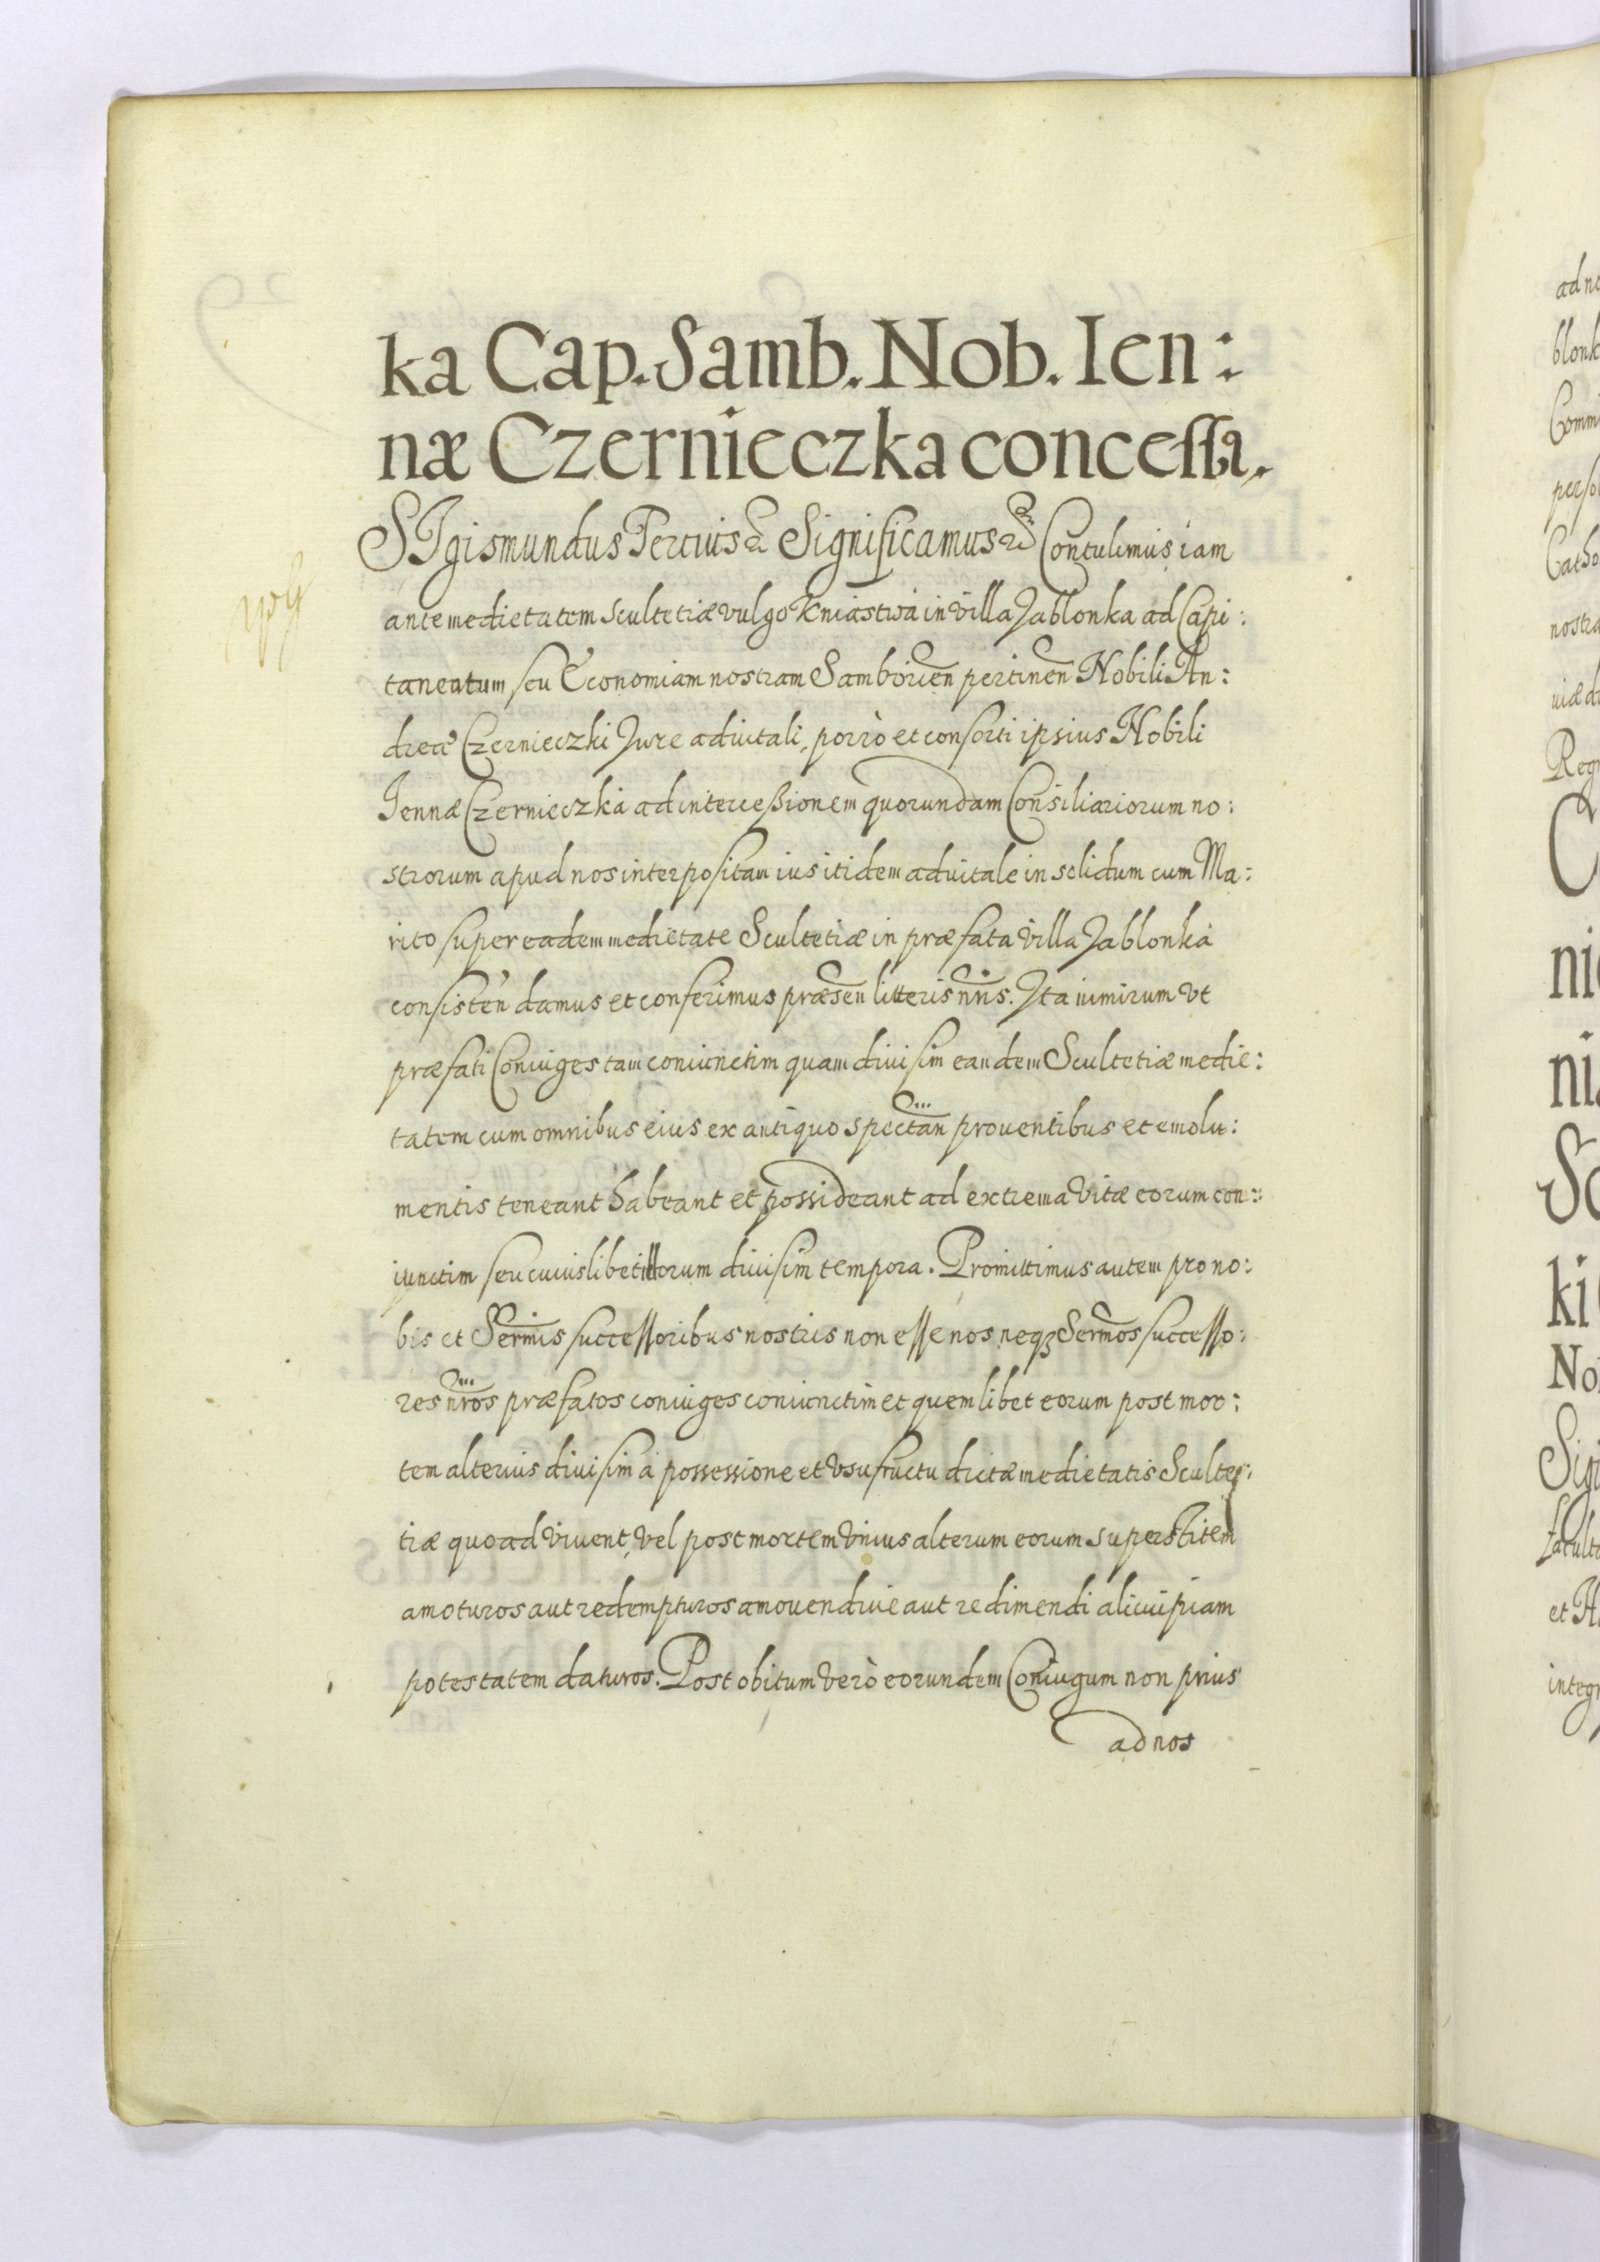 ka Cap. Samb. Nob. Ien:
næ Czernieczka concessa.
SIgismundus Tertius &c Significamus &c Contulimus iam
ante medietatem scultetiæ vulgo Kniastwa in villa Jablonka ad Capi:
taneatum seu Œconomiam nostram Samborien pertinen Nobili An:
dreæ Czernieczki Jure aduitali, porrò et consorti ipsius Nobili
Jennæ Czernieczka ad intercessionem quorundam Consiliariorum no:
strorum apud nos interpositam ius itidem aduitale in solidum cum Ma:
rito super eadem medietate Scultetiæ in præfata villa Jablonka
consisten damus et conferimus præsen litteris nris. Ita nimirum vt
præfati Coniuges tam coniunctim quam diuisim eandem Scultetiæ medie:
tatem cum omnibus eius ex antiquo spectan prouentibus et emolu:
mentis teneant habeant et possideant ad extrema vitæ eorum con:
iunctim seu cuiuslibet illorum diuisim tempora. Promittimus autem pro no:
bis et Sermis successoribus nostris non esse nos neqꝫ Sermos successo:
res nros præfatos coniuges coniunctim et quemlibet eorum post mor:
tem alterius diuisim à possessione et vsufructu dictæ medietatis Sculte:
tiæ quoad viuent, vel post mortem vnius alterum eorum superstitem
amoturos aut redempturos amouendiue aut redimendi alicuipiam
potestatem daturos. Post obitum verò eorundem Coniugum non prius
ad nos